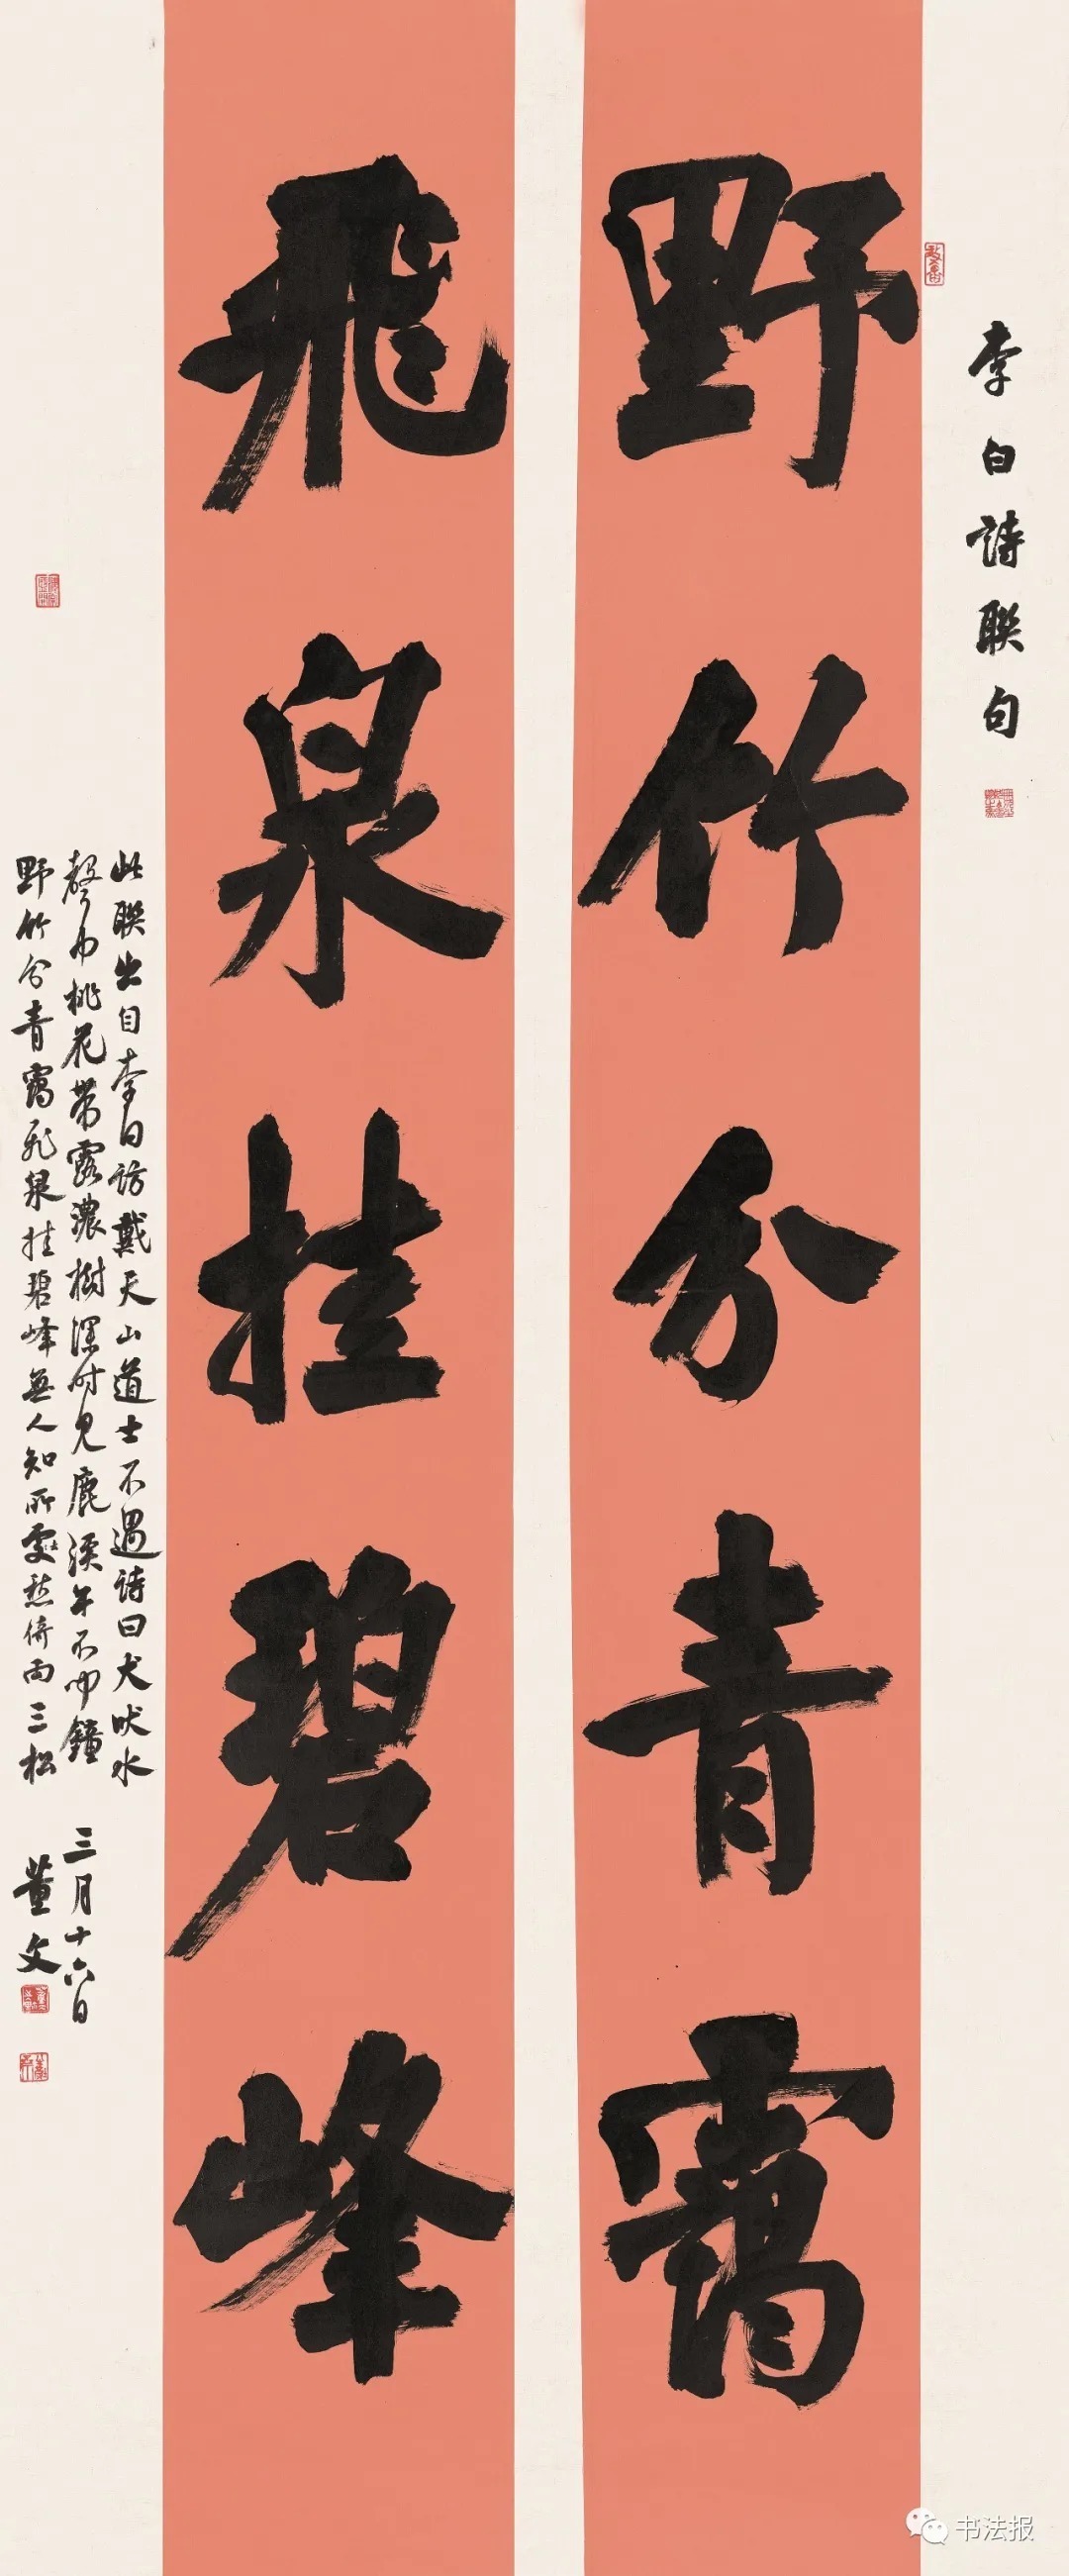 李白詩聯句
野竹分青靄
飛泉挂碧峰
此聯出自李白訪戴天山道士不遇詩曰犬吠水
聲中桃花帶露濃樹深时見鹿溪午不闻鐘
野竹分青靄飛泉挂碧峰無人知所處愁倚兩三松
三月十六日
董文
书法报